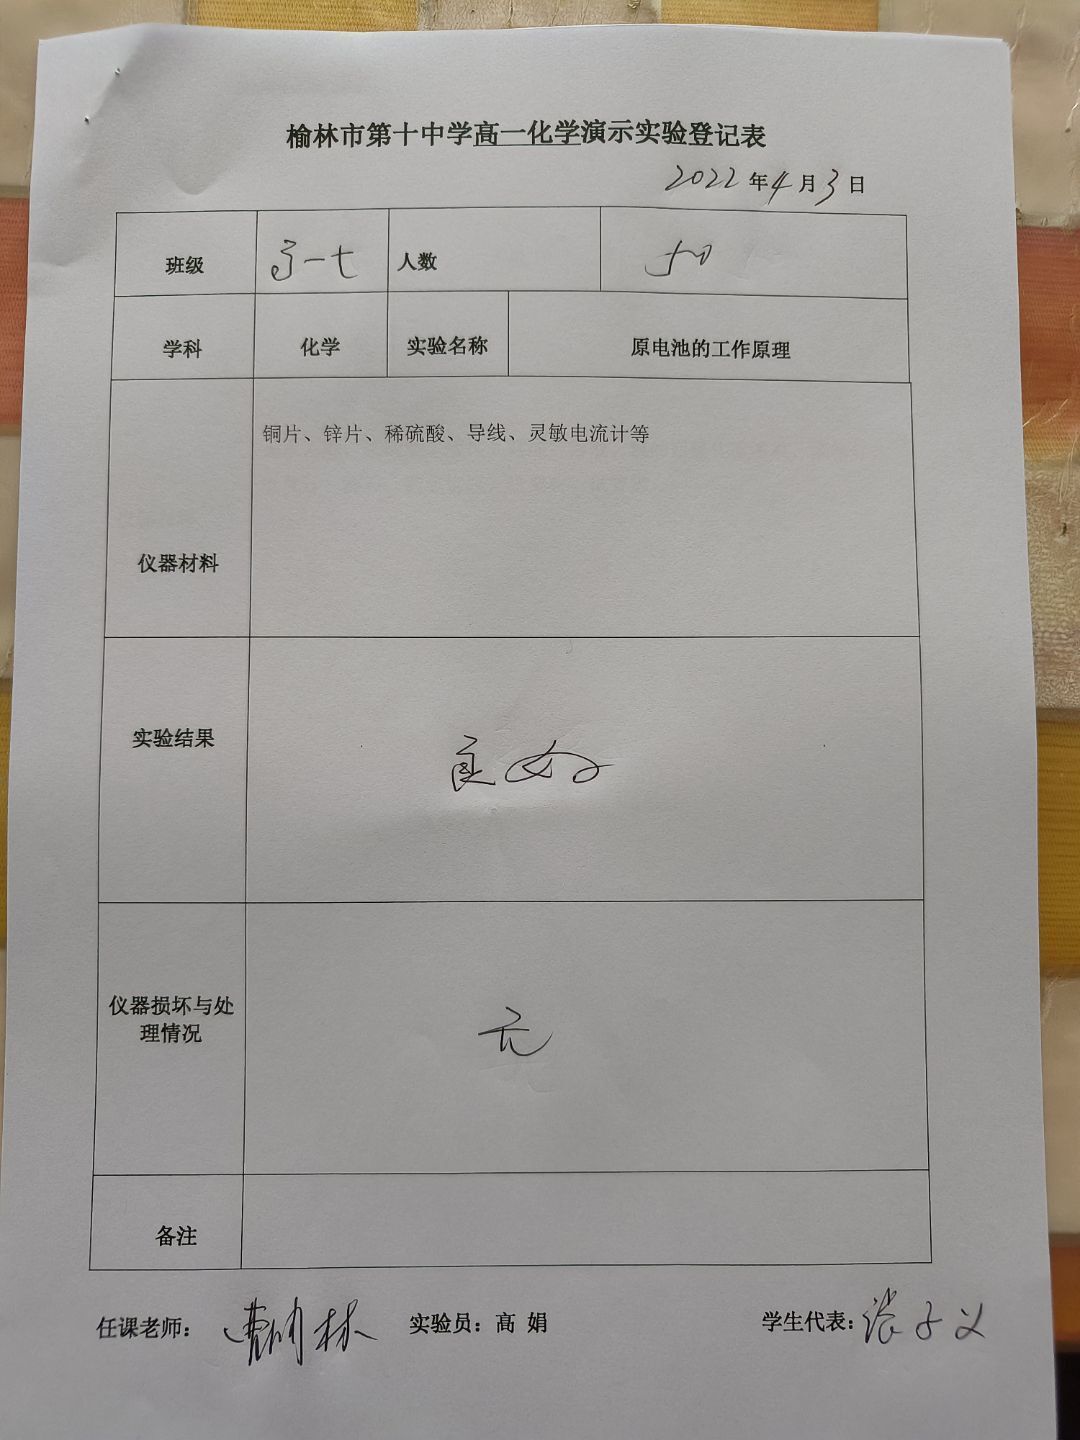 榆林市第十中学高一化学演示实验登记表
2022年4月3日
班级 高一七 人数 50
学科 化学 实验名称 原电池的工作原理
铜片、锌片、稀硫酸、导线、灵敏电流计等
仪器材料
实验结果 良好
仪器损坏与处
理情况
无
备注
任课老师： 实验员：高 娟 学生代表：张子义